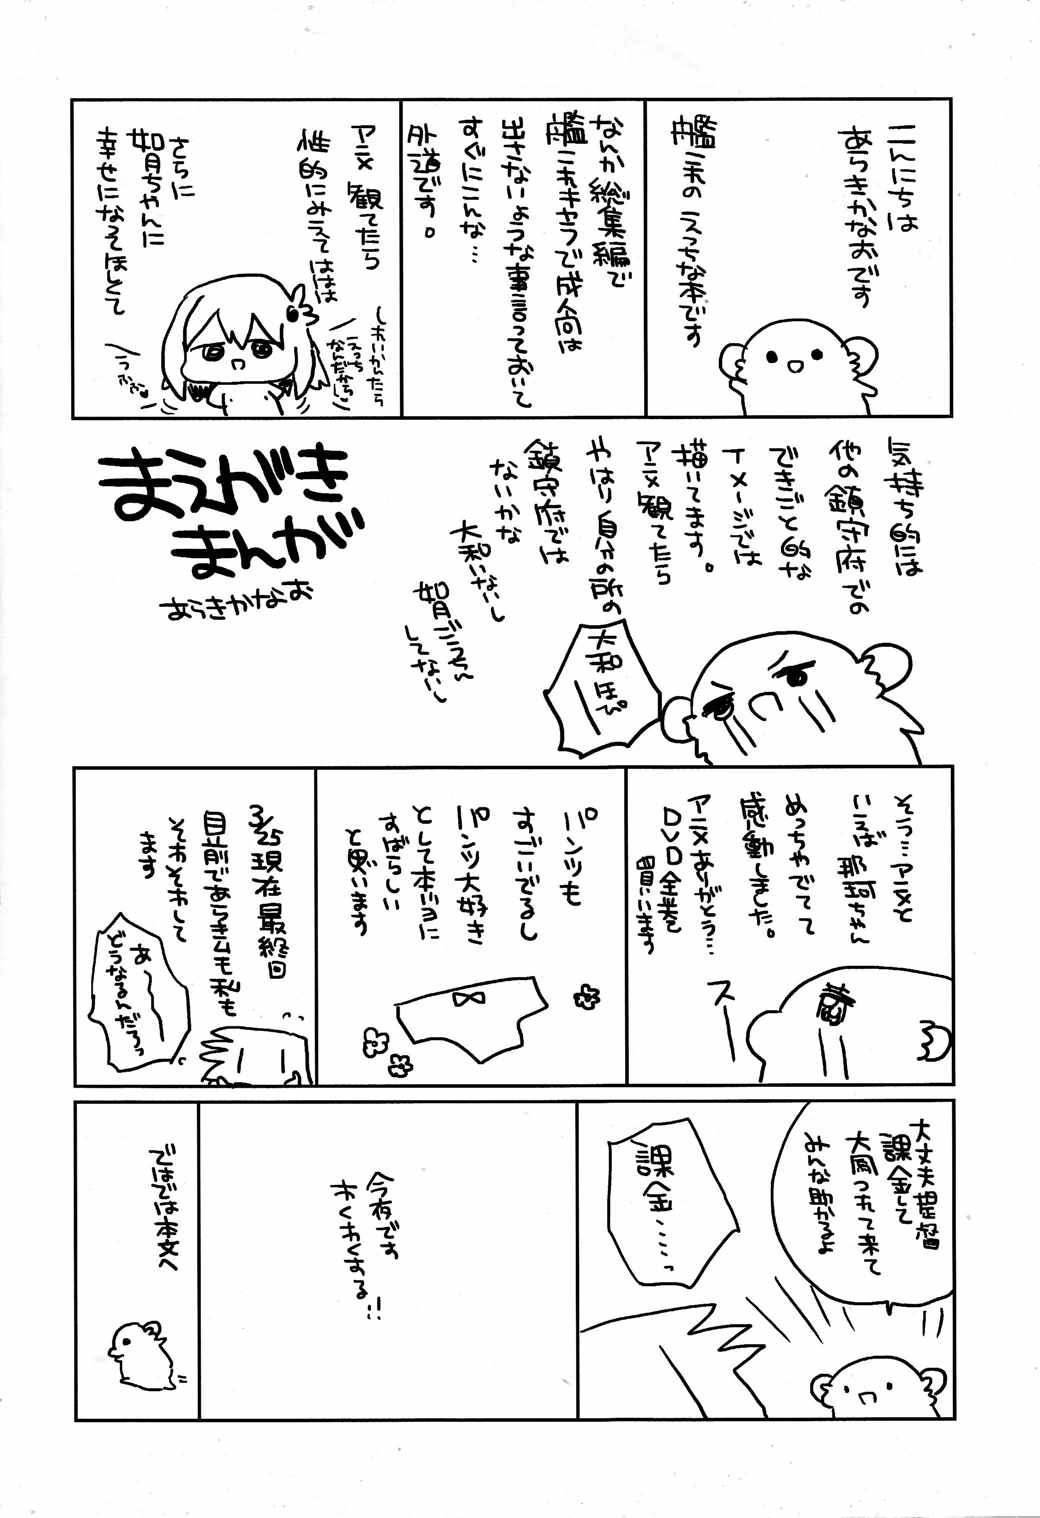 こんにちは
あらきかなおです
艦これの えっちな本です
なんか総集編で
艦これキャラで成人向は
出さないような事言っておいて
すぐにこんな…
外道です。
アニメ観てたら
性的にみえてははは
さらに
如月ちゃんに
幸せになってほしくて
えっち
なんだからし
うふふ♥
まえがき
まんが
あらきかなお
気持ち的には
他の鎮守府での
できごと的な
イメージでは
描いてます。
アニメ観てたら
やはり自分の所の
鎮守府では
ないかな
大和いないし
如月ごうちん
してないし
大和ほぴ
そう…アニメと
いえば 那珂ちゃん
めっちゃでてて
感動しました。
アニメありがとう…
DVD全巻を
買います
スー
パンツも
すごいでるし
パンツ大好き
として本当に
すばらしい
と思います
3/25現在最終回
目前であらきムも私も
そわそわして
ます
あ〜
どうなるんだろっ
大丈夫提督
課金して
大鳳つれて来て
みんな助かるよ
課金……っ
今夜です
わくわくする!!
ではでは本文へ